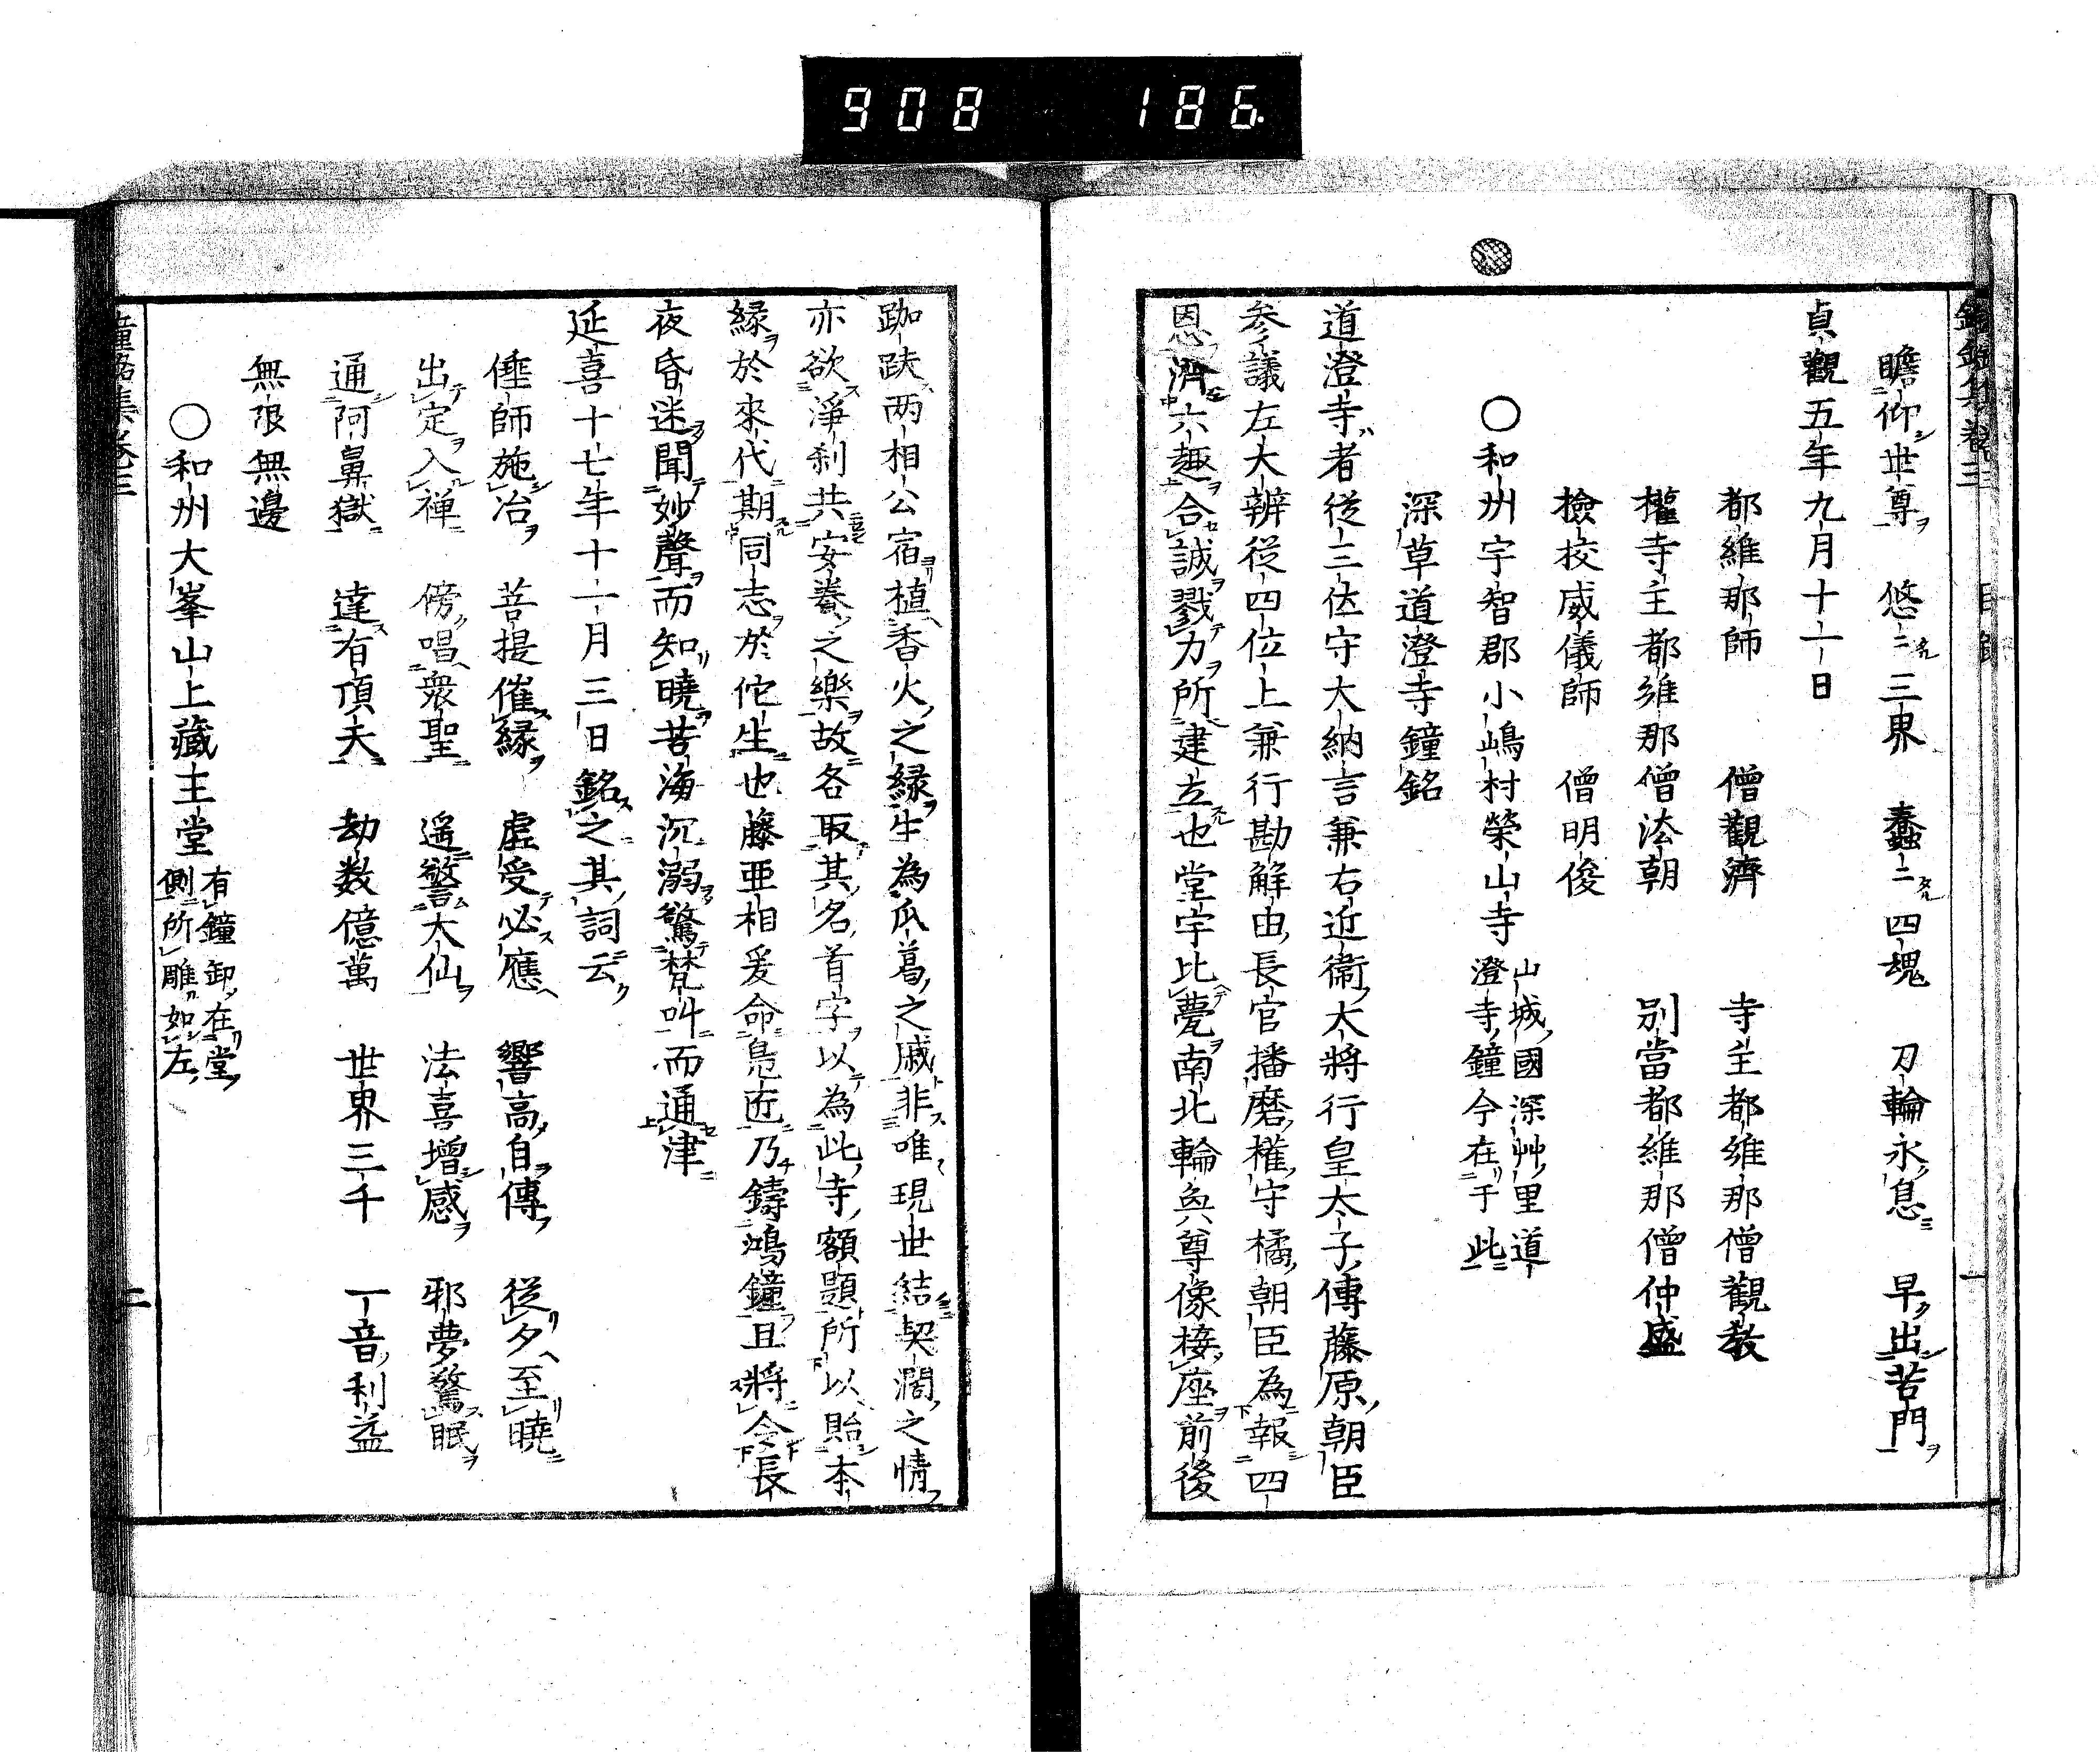 908 186
瞻仰世尊 悠〻三界 蠢〻四塊 刀輪永息 早出苦門
貞觀五年九月十一日
都維那師 僧觀濟 寺主都維那僧觀教
權寺主都維那僧法朝 別當都維那僧仲盛
檢挍威儀師 僧明俊
○和州宇智郡小嶋村榮山寺 山城國深艸里道
澄寺鐘今在于此
深草道澄寺鐘銘
道澄寺者從三位守大納言兼右近衞大將行皇太子傳藤原朝臣
參議左大辨從四位上兼行勘解由長官播磨權守橘朝臣為報四
恩濟六趣合誠戮力所建立也堂宇比甍南北輪奐尊像接座前後
跏趺两相公宿植香火之緣生為瓜葛之戚非唯現世結契濶之情
亦欲淨刹共安養之樂故各取其名首字以為此寺額題所以貽本
緣於來代期同志於佗生也藤亜相爰命鳧匠乃鑄鴻鐘且將令長
夜昏迷聞妙聲而知曉苦海沉溺驚梵叫而通津
延喜十七年十一月三日銘之其詞云
倕師施冶 菩提催緣 虛受必應 響高自傳 從夕至曉
出定入禅 傍唱衆聖 遥警大仙 法喜增感 邪夢驚眠
通阿鼻獄 達有頂天 劫数億萬 世界三千 一音利益
無限無邊
○和州大峯山上藏王堂 有鐘卸在堂
側所雕如左
鐘銘集卷三
二